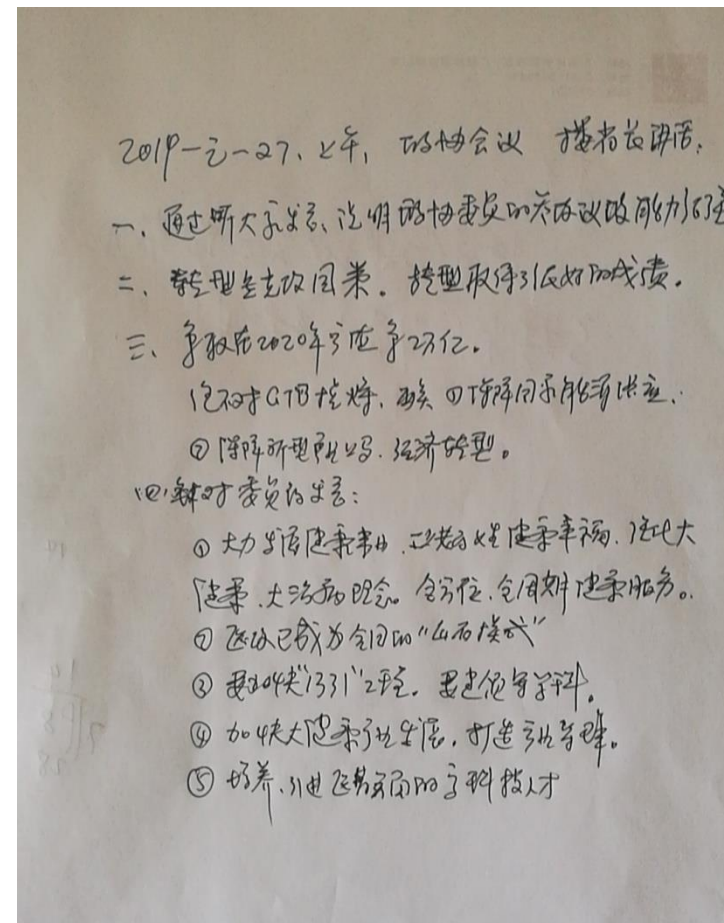 2019-元-27、上午, 政协会议 楼省长讲话:
一、通过听大家发言、说明政协委员的参政议政能力
二、转型是主攻因素。转型取得了很好的成绩。
三、争取在2020年实 2万亿。
对GTB 、 ①保障国家能源供应、
②保障新型产业、经济转型。
四、针对委员的发言:
①大力发展健康事业、让老百姓健康幸福、强化大
健康、大治病理念。全方位、全周期健康服务。
②医改已成为全国的“山西模式”
③要加快“1331”工程。要建优势学科。
④加快大健康产业发展,打造产业 群。
⑤培养、引进医药方面的高科技人才